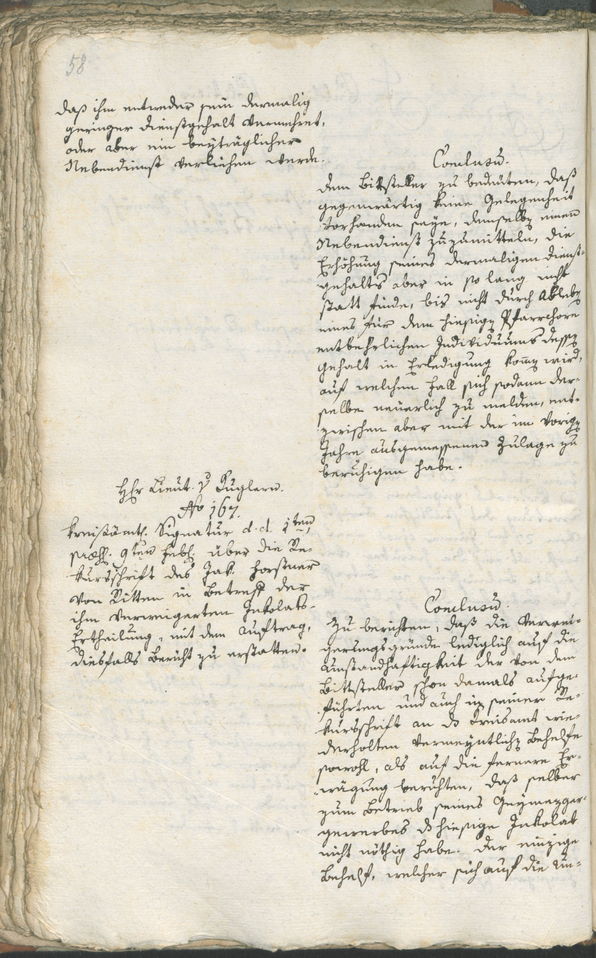 58
daß ihm entweder sein dermalig
geringer Dienstgehalt vermehret,
oder aber ein beyträglicher
Nebendienst verliehen werde.
Conclusu.
Dem Bittsteller zu bedeuten, daß
gegenwärtig keine Gelegenheit
vorhanden seye, demselben einen
Nebendienst zuzumitteln, die
Erhöhung seines dermaligen Dienst-
gehalts aber in so lang nicht
statt finde, bis nicht durch Ableben
eines für dem hiesigen Pfarrchore
entbehrlichen Individuums dessen
Gehalt in Erledigung komme wird,
auf welchen Fall sich sodann der-
selbe neuerlich zu melden, ent-
zwischen aber mit der im vorigen
Jahre ausgemessenen Zulage zu
beruhigen habe.
Hr Lieut. v Guglern.
No 167.
Kreisämtl. Signatur d. d. 1ten
9ten über die Re-
kursschrift des Jak. Forstner
von Ritten in Betreff der
ihm verweigerten Inkolats-
Ertheilung, mit dem Auftrag,
diesfalls Bericht zu erstatten.
Conclusu.
Zu berichten, daß die Verwei-
gerungsgründe lediglich auf die
Unstandhaftigkeit der von dem
Bittsteller schon damals aufge-
führten und auch in seiner Re-
kursschrift an das Kreisamt wie-
derholten vermeyntlichen Behelfe
sowohl, als auf die fernere Er-
wägung beruhten, daß selber
zum Betrieb seines
gewerbes das hiesige Inkolat
nicht nöthig habe. Der einzige
Behelf, welcher sich auf die Un-